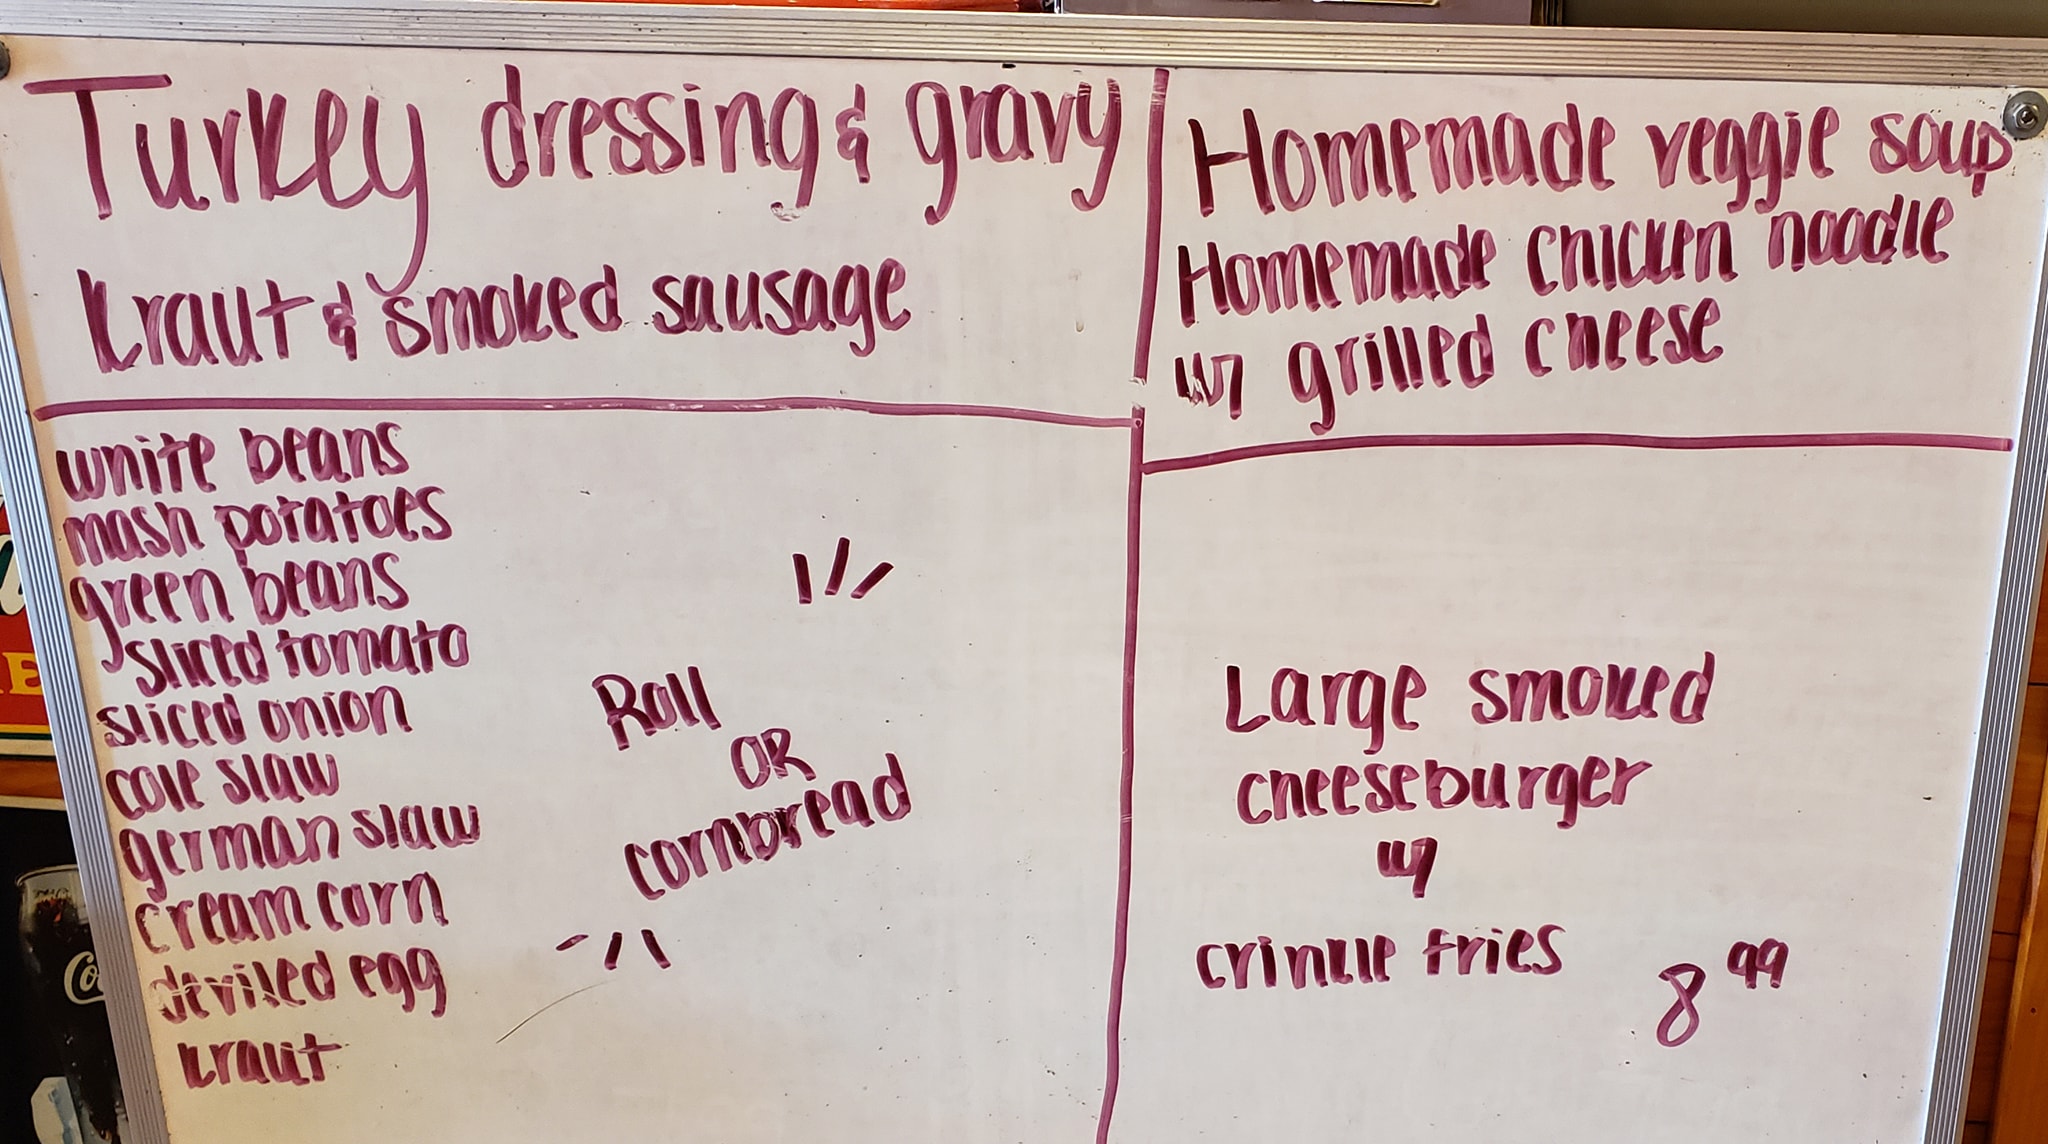 Turkey dressing & gravy
kraut & smoked sausage
white beans
mash potatoes
green beans
sliced tomato
sliced onion
cole slaw
german slaw
cream corn
deviled egg
kraut
Roll
OR
cornbread
Homemade veggie soup
Homemade chicken noodle
w/ grilled cheese
Large smoked
cheeseburger
w/
crinkle fries 8 99
Co